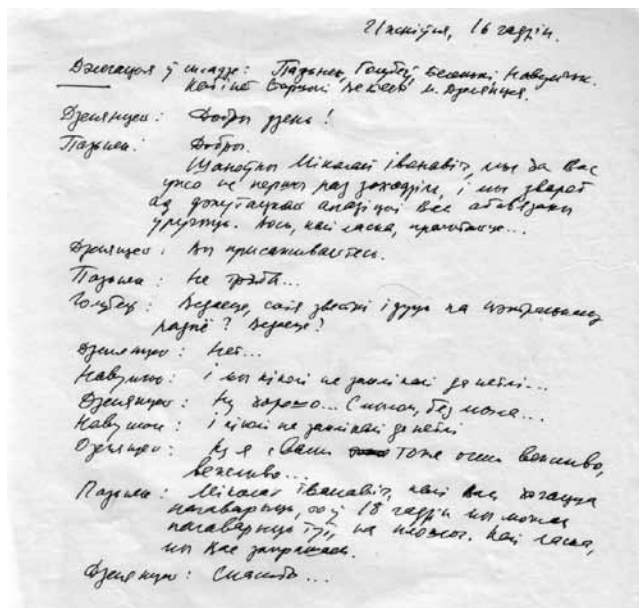 21 жніўня, 16 гадзін.
Дэлегацыя ў складзе: Пазьняк, Голубеў, Беленькі, Навумчык.
Дземянцеў: Добры дзень!
Пазьняк: Добры.
Шаноўны Мікалай Іванавіч, мы да Вас
ужо не першы раз заходзім, і мы зварот
ад дэпутацкай апазіцыі Вам абавязаны
уручыць. Вось, калі ласка, прачытайце...
Дземянцеў: Вы присаживайтесь.
Пазьняк: Не трэба...
Голубеў: Ведаеце, самя звесткі ідуць па цэнтральнаму
радыё? Ведаеце?
Дземянцеў: Нет...
Навумчык: І мы ніколі не заклікалі да петлі...
Дземянцеў: Ну хорошо... С мылом, без мыла...
Навумчык: І ніколі не заклікалі да петлі
Дземянцеў: Ну я с Вами тоже очень вежливо,
вежливо...
Пазьняк: Мікалай Іванавіч, калі Вам хочацца
пагаварыць, то ў 18 гадзін мы можам
пагаварыць тут, на плошчы. Калі ласка,
мы Вас запрашаем.
Дземянцеў: Спасибо...